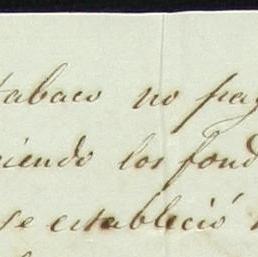 tabaco no pag
iendo los fond
se estableció